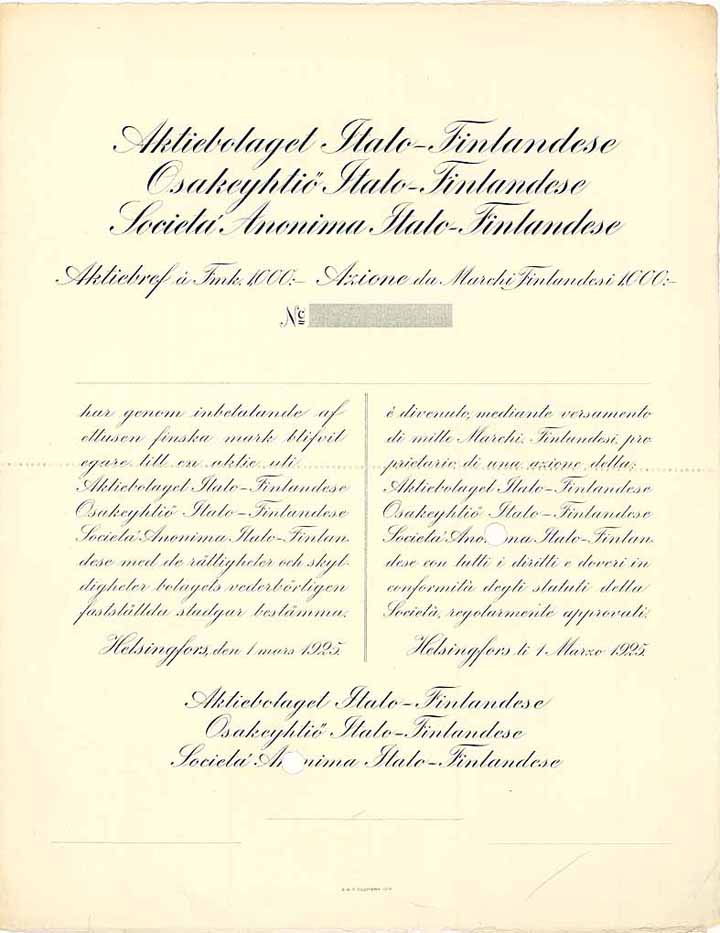 Aktiebolaget Italo-Finlandese
Osakeyhtiö Italo-Finlandese
Societá Anonima Italo-Finlandese
Aktiebref à Fmk. 1,000:- Azione da Marchi Finlandesi 1,000:-
No
har genom inbetalande af
ettusen finska mark blifvit
egare till en aktie uti
Aktiebolaget Italo-Finlandese
Osakeyhtiö Italo-Finlandese
Societá Anonima Italo-Finlan-
dese med de rättigheter och skyl-
digheter bolagets vederbörligen
fastställda stadgar bestämma.
Helsingfors, den 1 mars 1925.
è divenuto, mediante versamento
di mille Marchi Finlandesi, pro
prietario di una azione della:
Aktiebolaget Italo-Finlandese
Osakeyhtiö Italo-Finlandese
Societá Ano ma Italo-Finlan-
dese con tutti i diritti e doveri in
conformità degli statuti della
Società, regolarmente approvati.
Helsingfors li 1 Marzo 1925.
Aktiebolaget Italo-Finlandese
Osakeyhtiö Italo-Finlandese
Societá An nima Italo-Finlandese